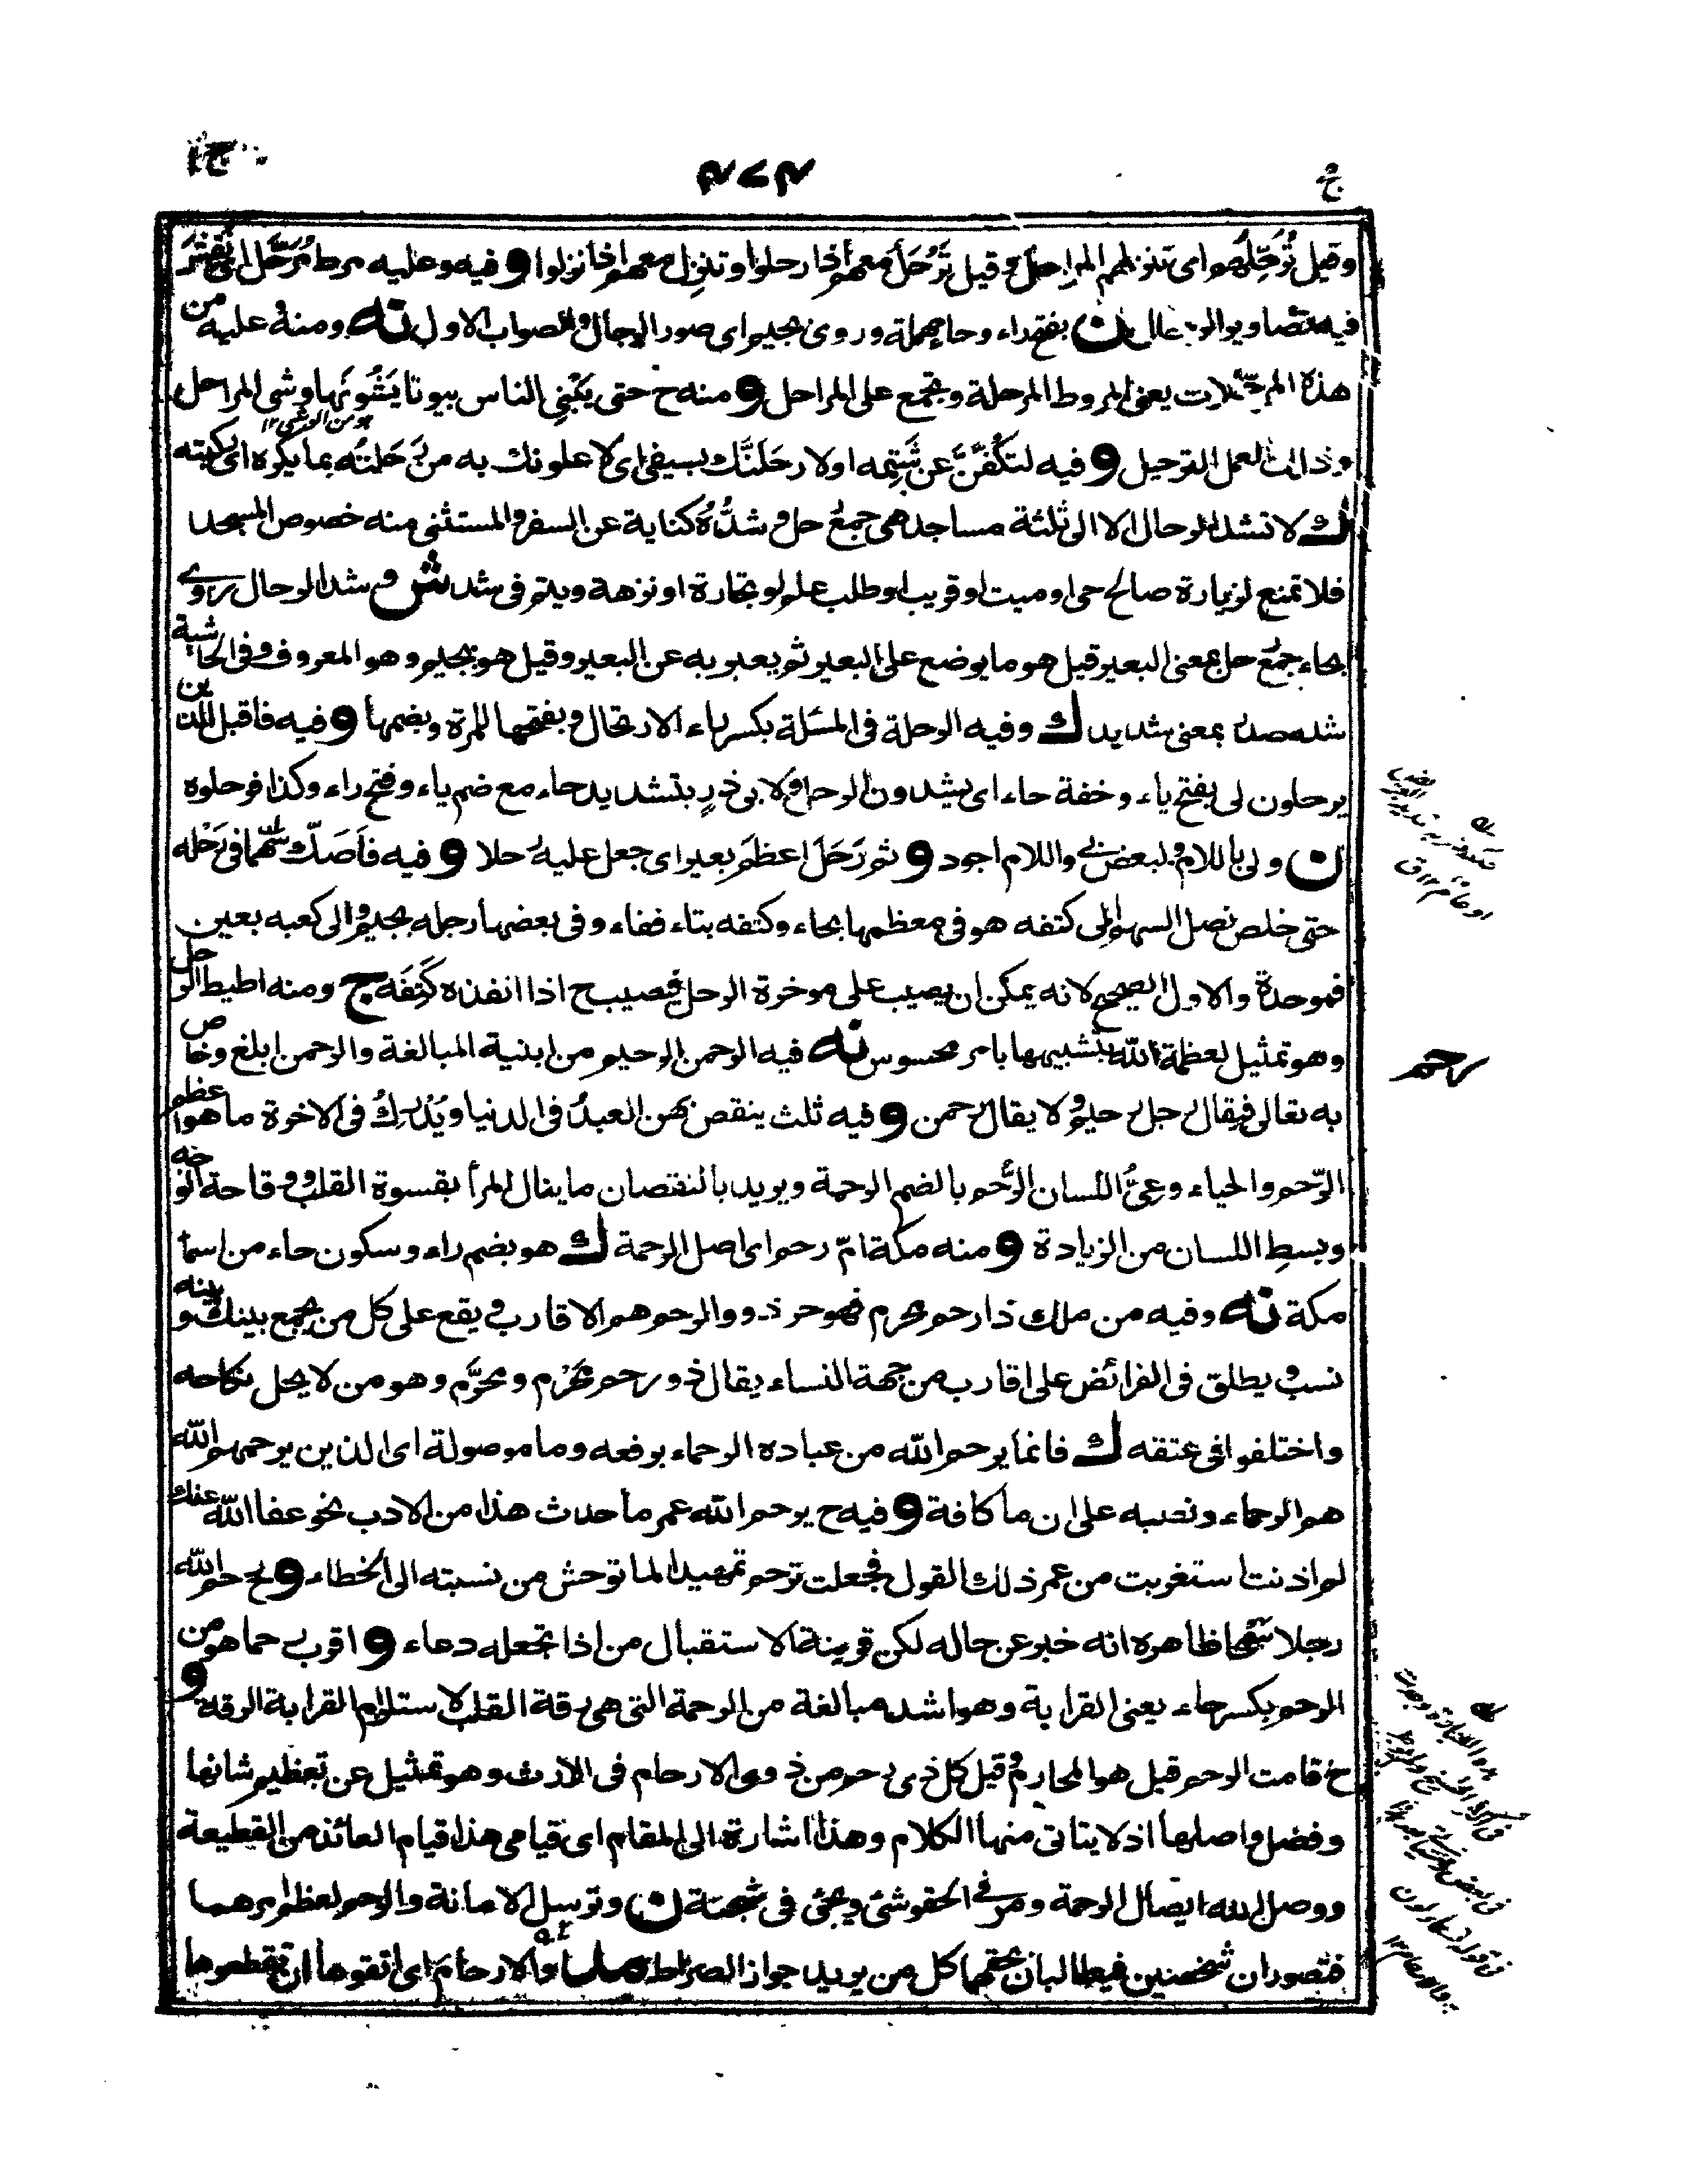 ج ١
٤٧٤
وقيل تُرَحِّلهم اى تنزلهم المراحل وقيل تَرْحَل معهم اذا رحلوا وتنزل معهم اذا نزلوا و فيه وعليه مرط مُرَحَّل
فيه تصاوير الرحال ن بفتح راء وحاء مهملة وروى بجيم اى صور الرجال والصواب الاول نه ومنه عليه من
هذه المرحّلات يعنى المروط المرحلة وتجمع على المراحل و منه ح حتى يَبْنِى الناس بيوتا يَشُونَها وشى المراحل
هو من الوشى ١٢
وذلك العمل الترحيل و فيه لتكُفّنَّ عن شَتِمه او لارحَلَنَّك بسيفى اى لاعلونك به من رَحَلتُه بما يكره اى ركبته
ك لا تشد الرحال الا الى ثلثة مساجد هى جمع رحل وشدُّه كناية عن السفر والمستثنى منه خصوص المسجد
فلا تمنع لزيارة صالح حى او ميت او قريب او طلب علم او تجارة او نزهة ويتم فى شد ش و شد الرحال روى
بحاء جمع رحل بمعنى البعير قيل هو ما يوضع على البعير ثم يعبر به عن البعير وقيل هو بجيم وهو المعروف وفى الحاشية
شد مصدر بمعنى شديد ك وفيه الرحلة فى المسئلة بكسر راء الارتحال وبفتحها للمرة وبضمها و فيه فاقبل الذين
يرحلون لى بفتح ياء وخفة حاء اى يشدون الرحل ولابى ذرٍ بتشديد حاء مع ضم ياء وفتح راء وكذا فرحلوه
ن ولى باللام ولبعض بى واللام اجود و ثم رَحَلَ اعظمَ بعير اى جعل عليه رحلا و فيه فاَصَكّ سهما فى رَحْله
حتى خلص نصل السهم الى كتفه هو فى معظمها بحاء وكتفه بتاء ففاء وفى بعضها رجله بجيم والى كعبه بعين
فموحدة والاول الصحيح لانه يمكن ان يصيب على موخرة الرحل فيصيب ح اذا انفذه كَتِفَه ج ومنه اطيط الرحل
وهو تمثيل لعظمة الله بتشبيهها بامر محسوس نه فيه الرحمن الرحيم من ابنية المبالغة والرحمن ابلغ وخاص
رحم
به تعالى فيقال رجل رحيم ولا يقال رحمن و فيه ثلث ينقص بهن العبد فى الدنيا ويُدْرِكُ فى الاخرة ما هو اعظم
الرّحم والحياء وعِىُّ اللسان الرُّحم بالضم الرحمة ويريد بالنقصان ما ينال المرأ بقسوة القلب ووقاحة الوجه
وبسطِ اللسان من الزيادة و منه مكة امّ رحم اى اصل الرحمة ك هو بضم راء وسكون حاء من اسماء
مكة نه وفيه من ملك ذا رحم محرم فهو حر ذوو الرحم هم الاقارب ويقع على كل من يجمع بينك وبينه
نسب ويطلق فى الفرائض على اقارب من جهة النساء يقال ذو رحم مَحْرَم ومحرَّم وهو من لا يحل نكاحه
واختلفوا فى عتقه ك فانما يرحم الله من عباده الرحماء برفعه وما موصولة اى الذين يرحمهم الله
هم الرحماء ونصبه على ان ما كافة و فيه ح يرحم الله عمر ما حدث هذا من الادب نحو عفا الله عنك
لم اذنت استغربت من عمر ذلك القول فجعلت ترحم تمهيدا لما توحش من نسبته الى الخطاء و ح رحم الله
رجلا سَمْحا ظاهره انه خبر عن حاله لكن قرينة الاستقبال من اذا تجعله دعاء و اقرب رحما هو من
الرحم بكسر حاء يعنى القرابة وهو اشد مبالغة من الرحمة التى هى رقة القلب لاستلزام القرابة الرقة و
ح قامت الرحم قيل هو المحارم وقيل كل ذى رحم من ذوى الارحام فى الارث وهو تمثيل عن تعظيم شانها
وفضل واصلها اذ لا يتاتى منها الكلام وهذا اشارة الى المقام اى قيامى هذا قيام العائذ من القطيعة
ووصل الله ايصال الرحمة ومر فى الحقو شئ ويجئ فى شجنة ن وترسل الامانة والرحم لعظم امرهما
فتصوران شخصين فيطالبان بحقهما كل من يريد جواز الصراط والارحام اى اتقوها ان تقطعوها